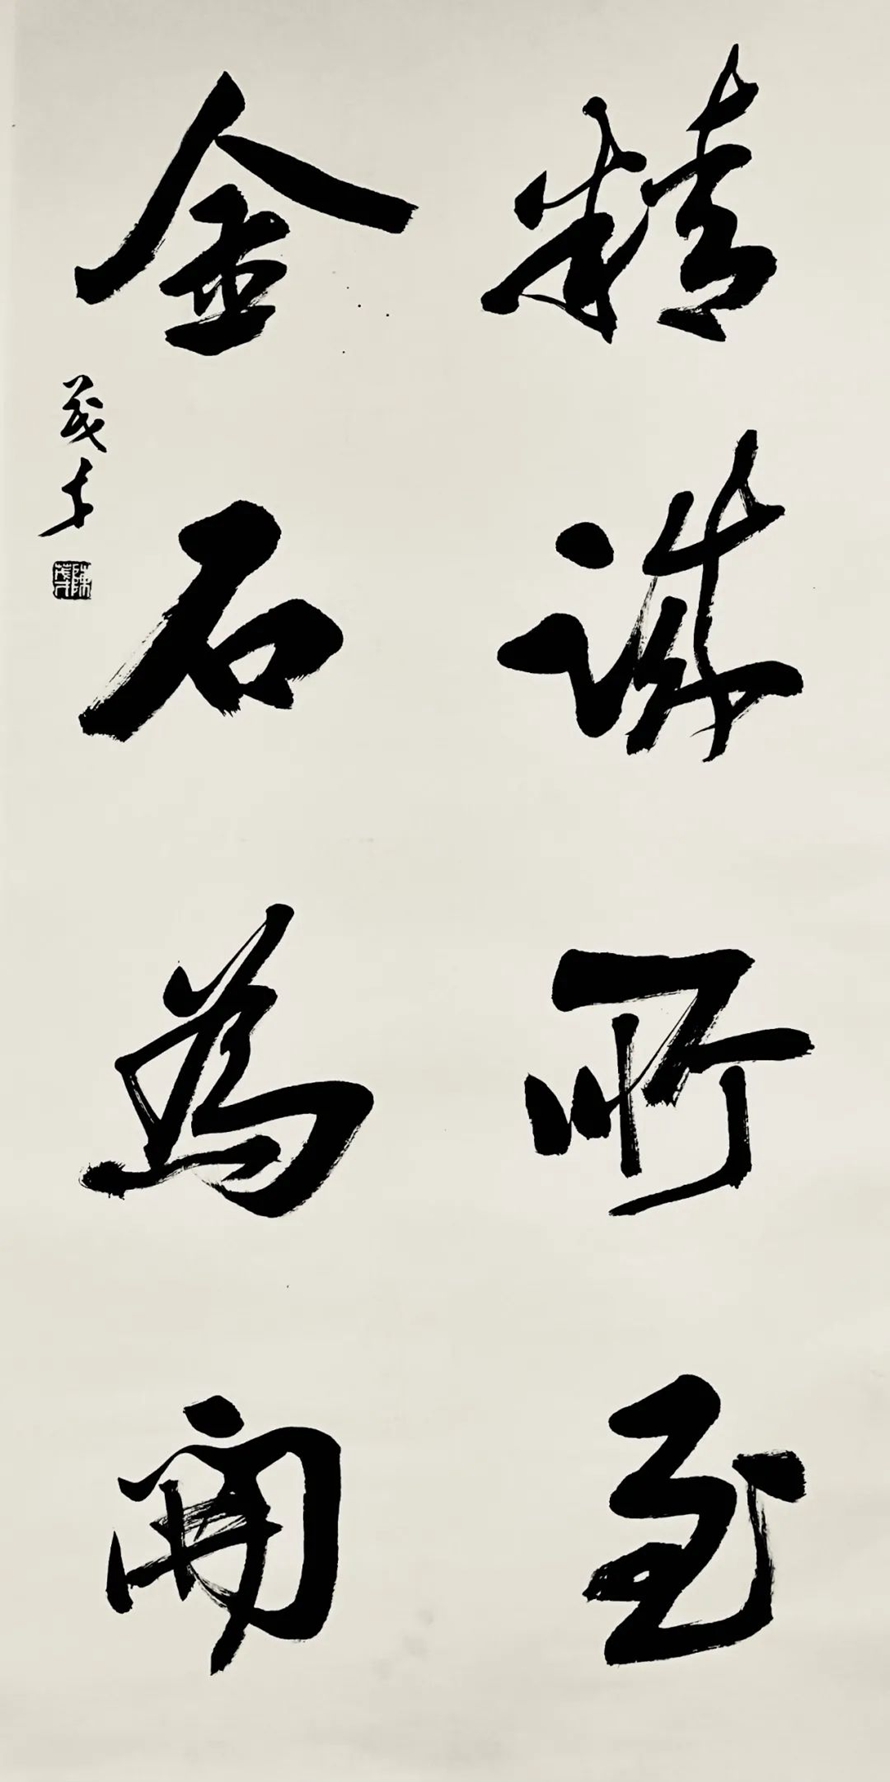 精诚所至
金石為開
茂才